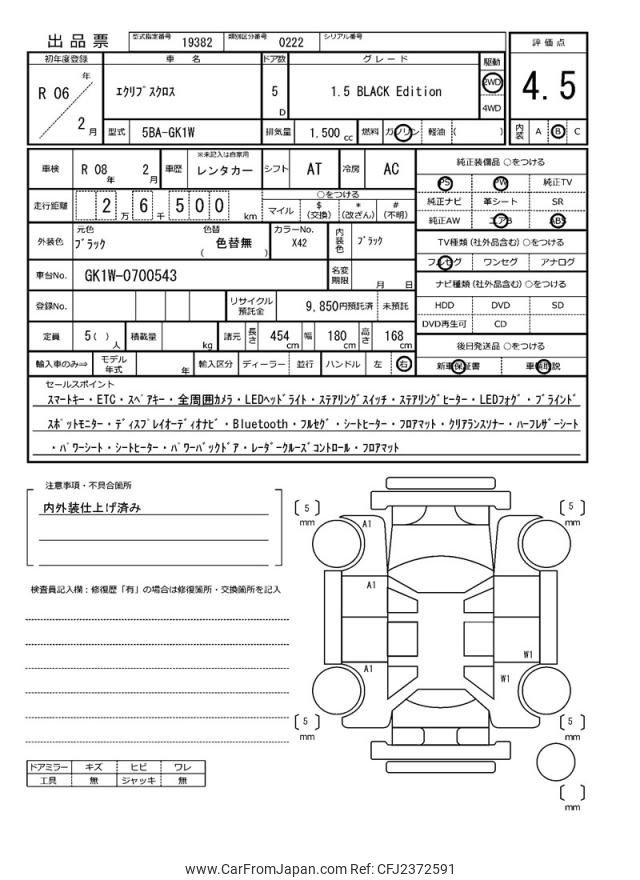 出品票 型式指定番号 19382 類別区分番号 0222 シリアル番号
初年度登録 車名 ドア数 グレード 駆動 評価点
R 06 年 2 月 エクリプスクロス 5 D 1.5 BLACK Edition 2WD 4WD 4.5
型式 5BA-GK1W 排気量 1,500 cc 燃料 ガソリン 軽油 ( ) 内装 A B C
車検 R 08 年 2 月 車歴 ※未記入は自家用 レンタカー シフト AT 冷房 AC
走行距離 2 万 6 千 5 0 0 km ○をつける マイル $ (交換) * (改ざん) # (不明)
外装色 元色 ブラック 色替 色替無 ( ) カラーNo. X42 内装色 ブラック
車台No. GK1W-0700543 名変期限 月 日
登録No. リサイクル預託金 9,850円預託済 未預託
定員 5( ) 人 積載量 kg 諸元 長さ 454 cm 幅 180 cm 高さ 168 cm
輸入車のみ⇒ モデル年式 年 輸入区分 ディーラー 並行 ハンドル 左 右
純正装備品 ○をつける
PS PW 純正TV
純正ナビ 革シート SR
純正AW エアB ABS
TV種類(社外品含む) ○をつける
フルセグ ワンセグ アナログ
ナビ種類(社外品含む) ○をつける
HDD DVD SD
DVD再生可 CD
後日発送品 ○をつける
新車保証書 車輌取説
セールスポイント
スマートキー・ETC・スペアキー・全周囲カメラ・LEDヘッドライト・ステアリングスイッチ・ステアリングヒーター・LEDフォグ・ブラインド
スポットモニター・ディスプレイオーディオナビ・Bluetooth・フルセグ・シートヒーター・フロアマット・クリアランスソナー・ハーフレザーシート
・パワーシート・シートヒーター・パワーバックドア・レーダークルーズコントロール・フロアマット
注意事項・不具合箇所
内外装仕上げ済み
検査員記入欄：修復歴「有」の場合は修復箇所・交換箇所を記入
ドアミラー キズ ヒビ ワレ
工具 無 ジャッキ 無
5 mm
5 mm
A1
A1
W1
A1
W1
5 mm
5 mm
mm
www.CarFromJapan.com Ref: CFJ2372591